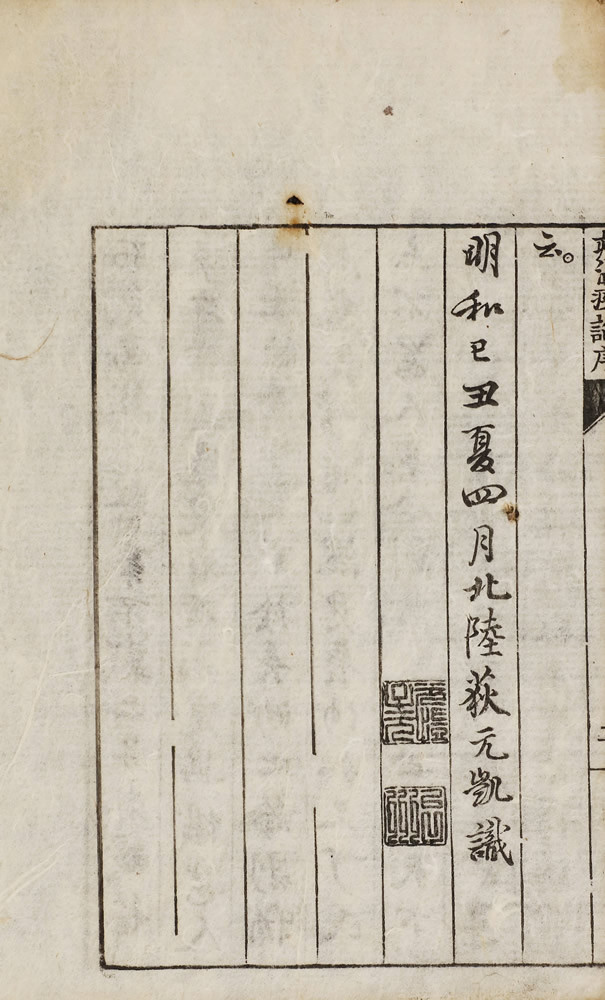 疫論序
云。
明和己丑夏四月北陸荻元凱識